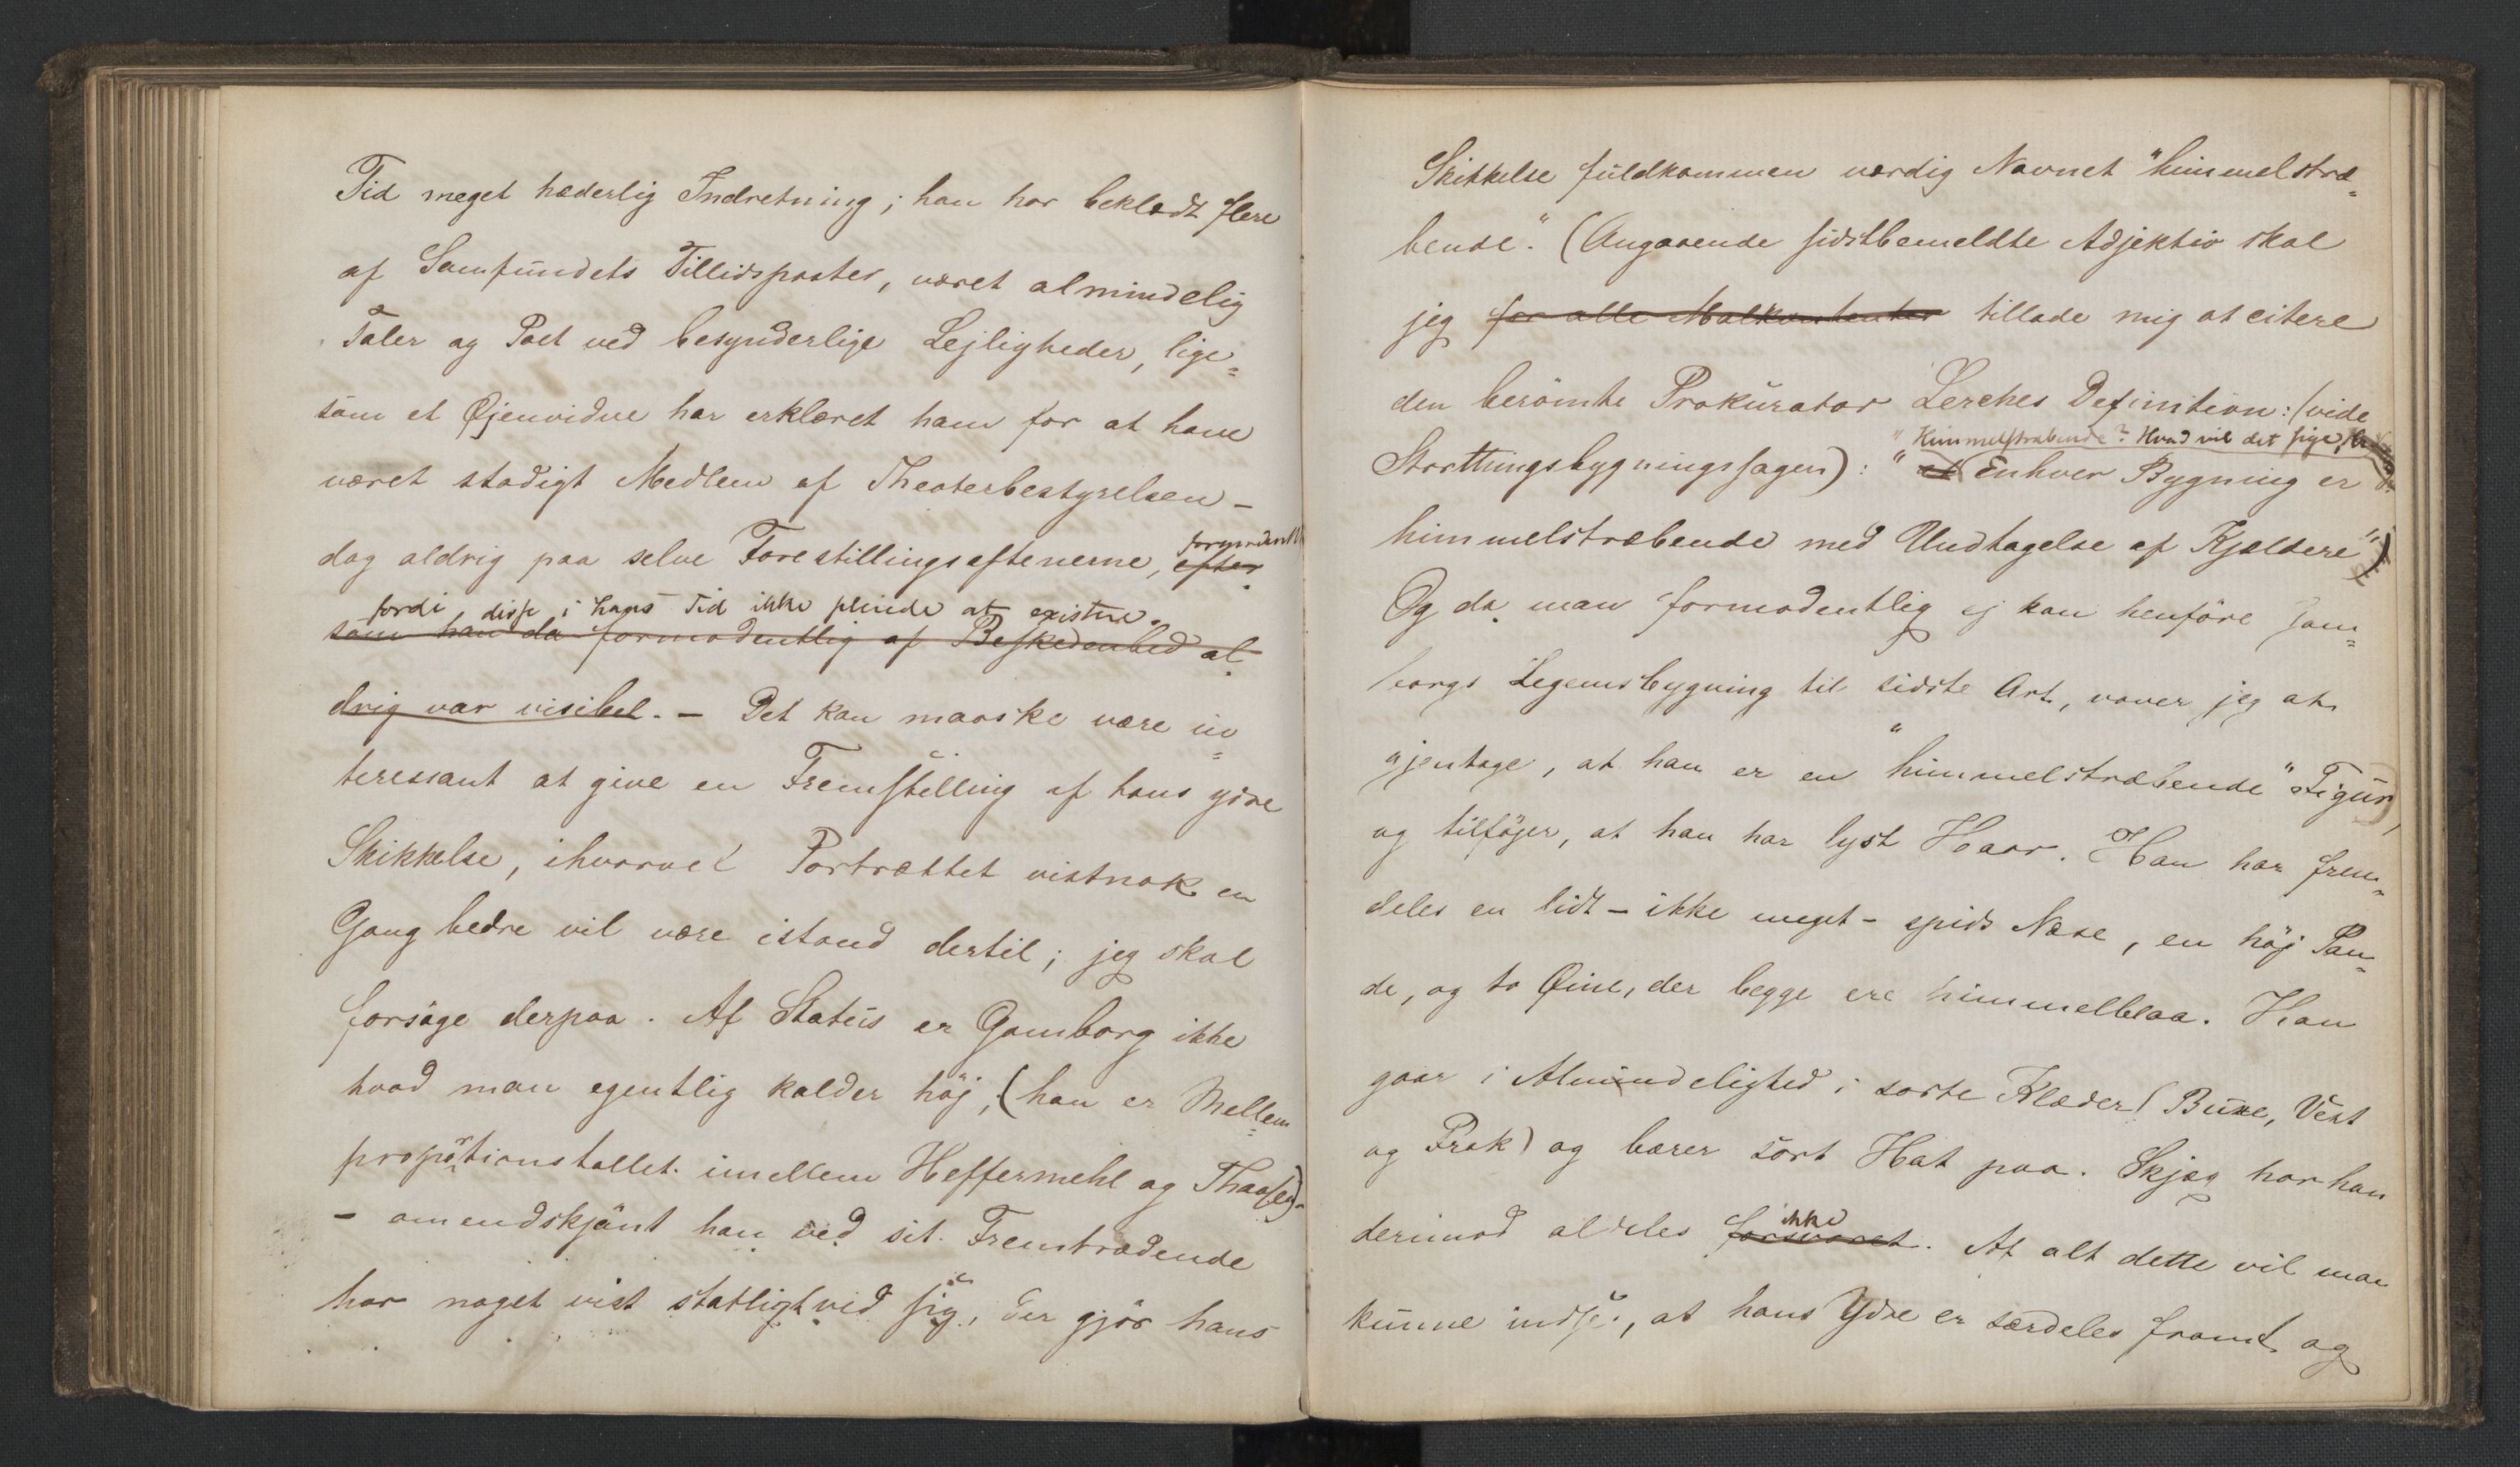 Tid meget hæderlig Indretning; han har beklædt flere
af Samfundets Tillidsposter, været almindelig
Taler og Poet ved besynderlige Lejligheder, lige=
som et Øjenvidne har erklæret ham for at have
været stadigt Medlem af Theaterbestyrelsen –
dog aldrig paa selve Forestillingsaftenerne, efter
formodentl
fordi disse i hans Tid ikke pleiede at existere.
som han da formodentlig af Beskedenhed al=
drig var visibel. – Det kan maaske være in=
teressant at give en Fremstilling af hans ydre
Skikkelse, ihvorvel Portrættet vistnok en
Gang bedre vil være istand dertil; jeg skal
forsøge derpaa. Af Status er Gamborg ikke
hvad man egentlig kalder höj, (han er Mellem=
propörtionstallet imellem Heffermehl og Thaasen)–
– omendskjönt han ved sit Fremtrædende
har noget vist statligt ved sig, der gjör hans
Skikkelse fuldkommen værdig Navnet "himmelstræ=
bende". (Angaaende sidstbemeldte Adjektiv skal
jeg for alle Malkontenter tillade mig at citere
den berömte Prokurator Lerches Definition: (vide
"Himmelstræbende? Hvad vil det sige,
Storthingsbygningssagen): " Enhver Bygning er
himmelstræbende med Undtagelse af Kjældere")
Og da man formodentlig ej kan henföre Gam=
borgs Legemsbygning til sidste Art, vover jeg at
gjentage, at han er en "himmelstræbende" Figur,
og tilföjer, at han har lyst Haar. Han har frem=
deles en lidt – ikke meget – spids Næse, en höj Pan=
de, og to Øine, der begge ere himmelblaa. Han
gaar i Almindelighed i sorte Klæder (Buxe, Vest
og Frak) og bærer sort Hat paa. Skjæg har han
derimod aldeles forsvoret. Af alt dette vil man
ikke
kunne indse, at hans Ydre er særdeles fromt og